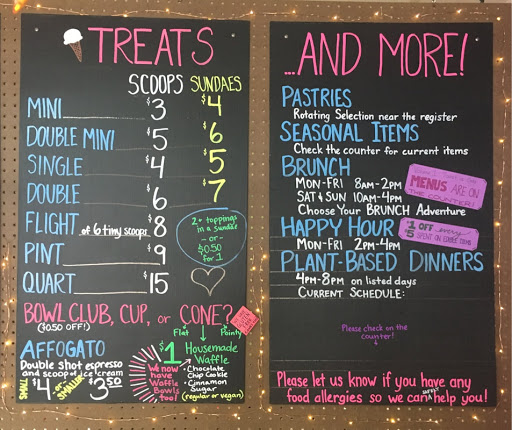 TREATS
SCOOPS SUNDAES
MINI $3 $4
DOUBLE MINI $5 $6
SINGLE $4 $5
DOUBLE $6 $7
FLIGHT of 6 tiny scoops $8
PINT $9
QUART $15
2+ toppings
in a sundae
-or-
$0.50
for 1
BOWL CLUB, CUP, or CONE?
($0.50 OFF!)
Flat
Pointy
AFFOGATO
Double shot espresso
and scoop of ice cream
SMALL $4 -or- SMALLER $3.50
We now
have
Waffle
Bowls
too!
$1 Housemade
Waffle
• Chocolate
Chip Cookie
• Cinnamon
Sugar
(regular or vegan)
...AND MORE!
PASTRIES
Rotating Selection near the register
SEASONAL ITEMS
Check the counter for current items
BRUNCH
MON-FRI 8AM-2PM
SAT & SUN 10AM-4PM
Choose Your BRUNCH Adventure
MENUS ARE ON
THE COUNTER!
HAPPY HOUR
MON-FRI 2PM-4PM
$1 OFF every
$5 SPENT ON EDIBLE ITEMS
PLANT-BASED DINNERS
4PM-8PM on listed days
CURRENT SCHEDULE:
Please check on the
counter!
Please let us know if you have any
food allergies so we can help you!